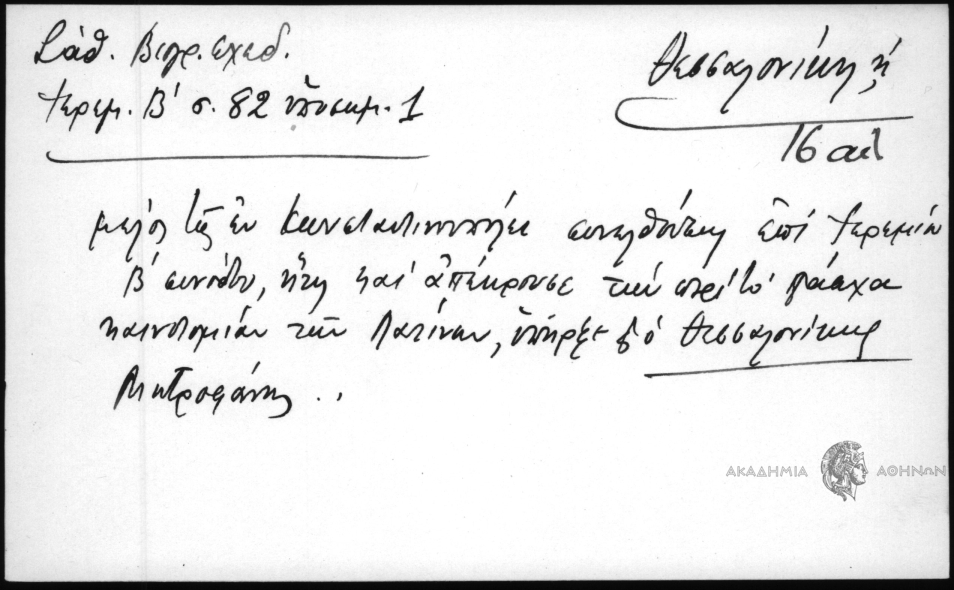 Σάθ. Βιογρ. σχεδ.
Ἱερεμ. Β' σ. 82 ὑποσημ. 1
Θεσσαλονίκη, ἡ
16 αἰ
μέλος τῆς ἐν Κωνσταντινουπόλει συνελθούσης ἐπί Ἱερεμίου
Β' συνόδου, ἥτις καί ἀπέκρουσε τήν περί τό Πάσχα
καινοτομίαν τῶν Λατίνων, ὑπῆρξε ὁ Θεσσαλονίκης
Μητροφάνης ..
ΑΚΑΔΗΜΙΑ ΑΘΗΝΩΝ